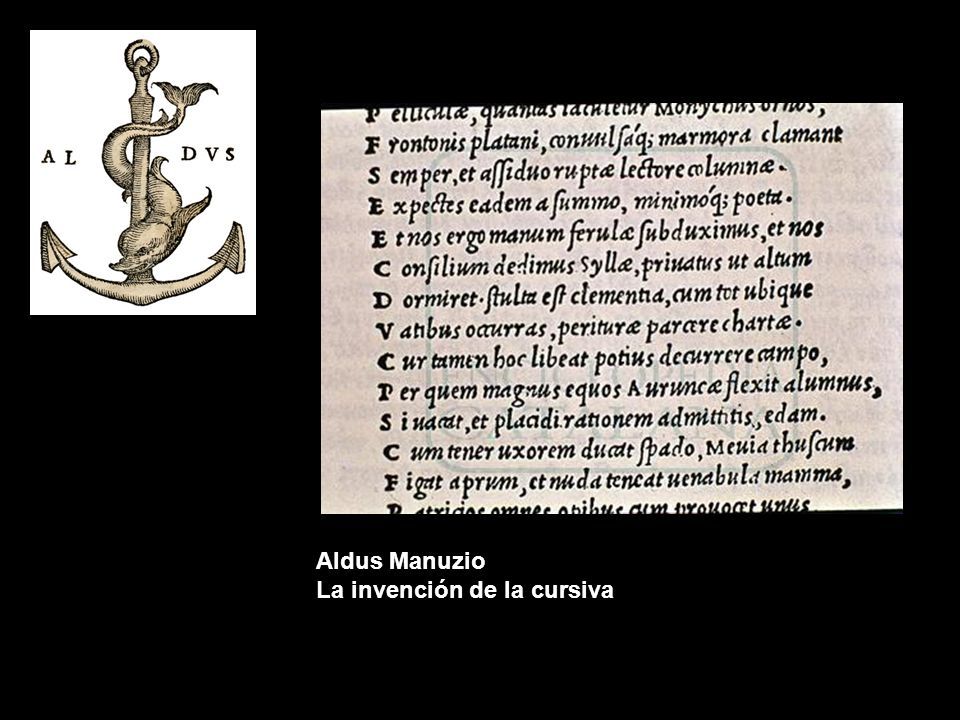 AL DVS
P elliculæ, quantas iaculetur Monychus ornos,
F rontonis platani, conuulsáq; marmora clamant
S emper, et assiduo ruptæ lectore columnæ.
E xpectes eadem a summo, minimóq; poeta.
E t nos ergo manum ferulæ subduximus, et nos
C onsilium dedimus Syllæ, priuatus ut altum
D ormiret. stulta est clementia, cum tot ubique
V atibus occurras, perituræ parcere chartæ.
C ur tamen hoc libeat potius decurrere campo,
P er quem magnus equos Auruncæ flexit alumnus,
S i uacat, et placidi rationem admittitis, edam.
C um tener uxorem ducat spado, Meuia thuscum
F igat aprum, et nuda teneat uenabula mamma,
P atricios omnes opibus cum prouocet unus
ENCICLOPÈDIA
CATALANA
Aldus Manuzio
La invención de la cursiva